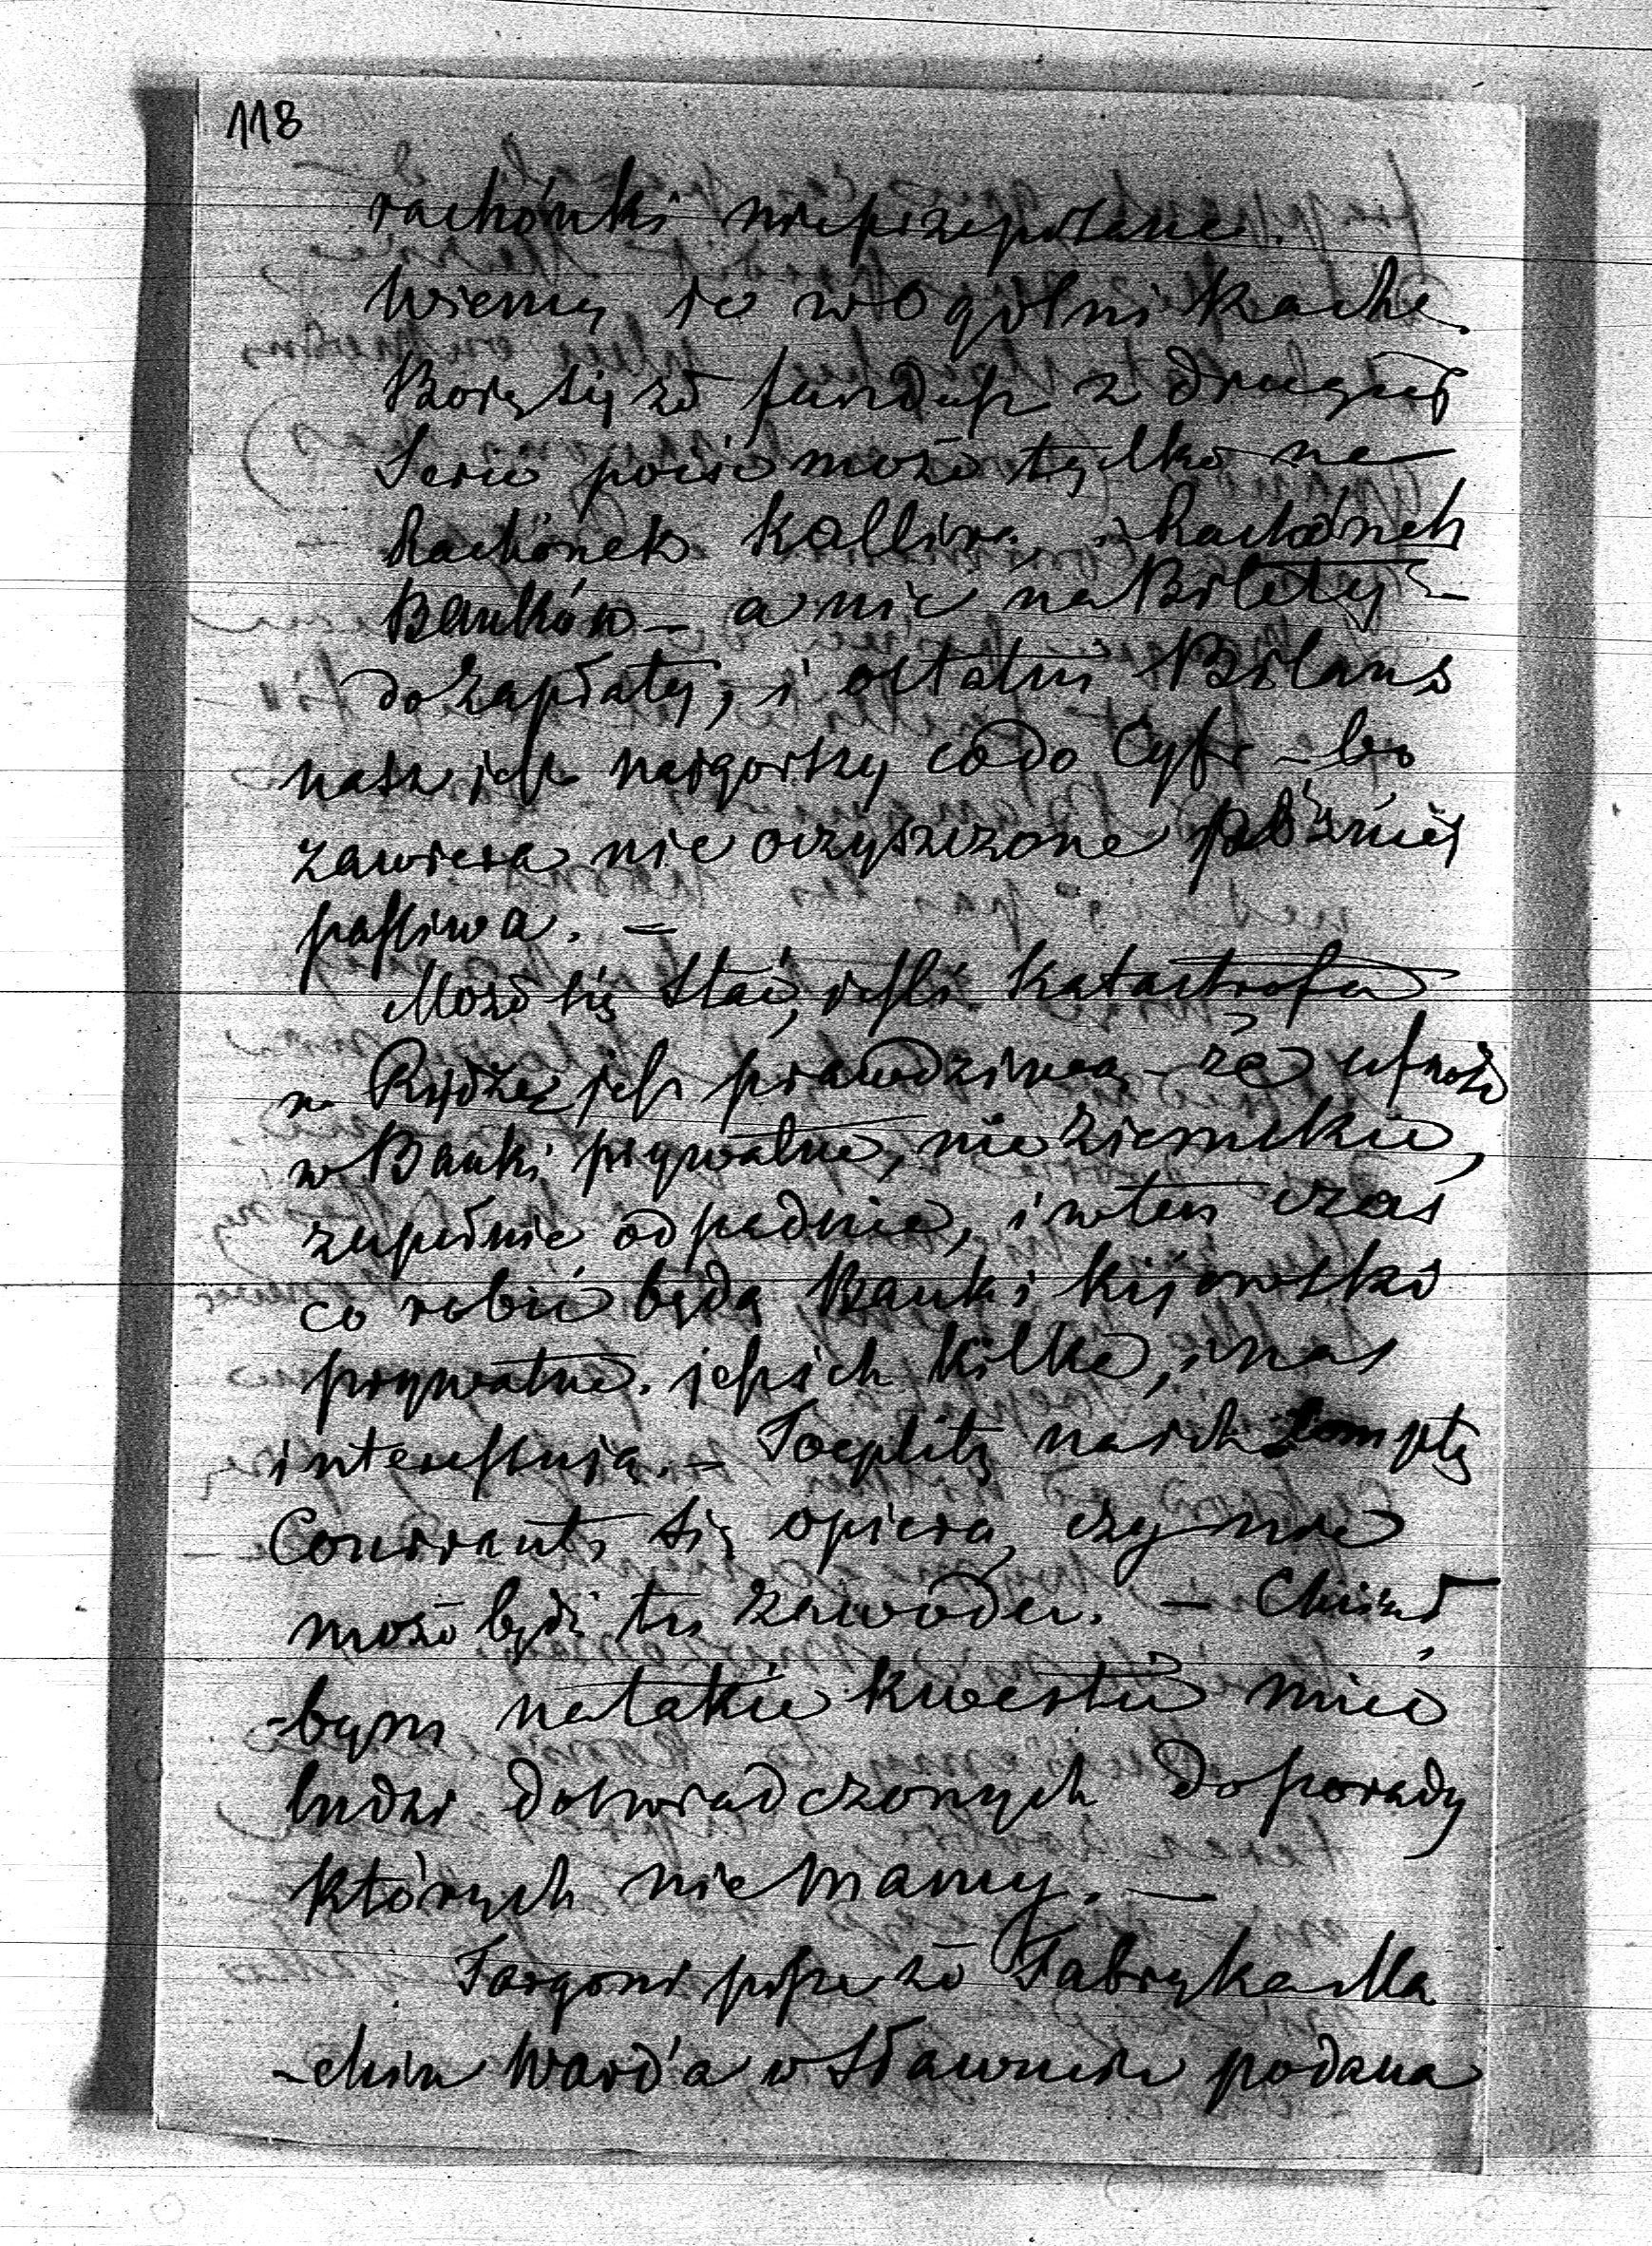 118
rachónki nieprzepisane.
Wiemy je w Ogólnikach.
Boję się że fundusz z drugiej
Serie pójść może tylko na
Rachónek Kallira i Rachónek
Banków – a nic na Bilety –
do zapłaty, i ostatni Bilans
nasz jest najgorszy co do Cyfr – bo
zawiera nie oczyszczone później
passiwa. –
Może się stać, jeśli Katastrofa
w Rydze jest prawdziwą – że ufność
w Banki prywatne, nie ziemskie,
zupełnie odpadnie, i wten czas
co robić będą Banki Kijowskie
prywatne. jest ich kilka, i nas
interessują. – Toeplitz na ich Compte
Courrants się opiera, czy nie
może być tu zawodu. – Chciał
-bym na takie kwestie mieć
ludzi doświadczonych do porady
których nie mamy. –
Targoni pisze że Fabryka Ma
-chin Ward'a w Sławucie podana